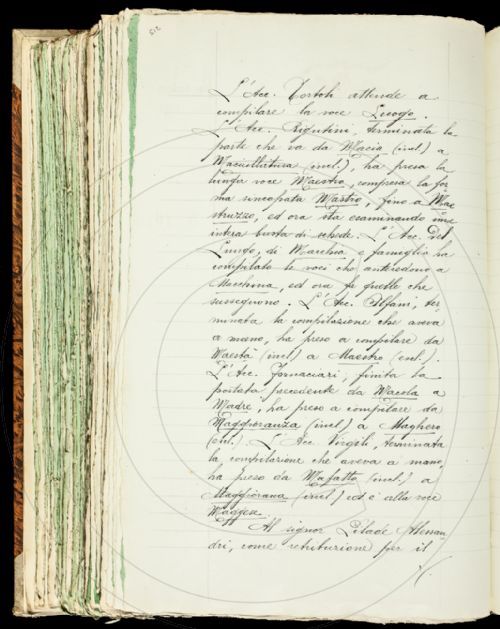 215
L'Acc. Tortoli attende a
compilare la voce Luogo.
L'Acc. Rigutini, terminata la
parte che va da Macia (incl.) a
Maciullatura (incl.), ha preso la
lunga voce Maestro, compresa la for
ma sincopata Mastro, fino a Mae
struzzo, ed ora sta esaminando una
intera busta di schede. L'Acc. Del
Lungo, di Macchia e famiglia ha
compilato le voci che antecedono a
Macchina, ed ora fa quelle che
susseguono. L'Acc. Alfani, ter
minata la compilazione che aveva
a mano, ha preso a compilare da
Maestà (incl.) a Maestro (escl.).
L'Acc. Fornaciari, finita la
portata precedente da Macola a
Madre, ha preso a compilare da
Maggioranza (incl.) a Maghero
(escl.) L'Acc. Virgili, terminata
la compilazione che aveva a mano,
ha preso da Mafatto (incl.) a
Maggiorana (incl.) ed è alla voce
Maggese.
Al signor Pilade Alessan
dri, come retribuzione per il